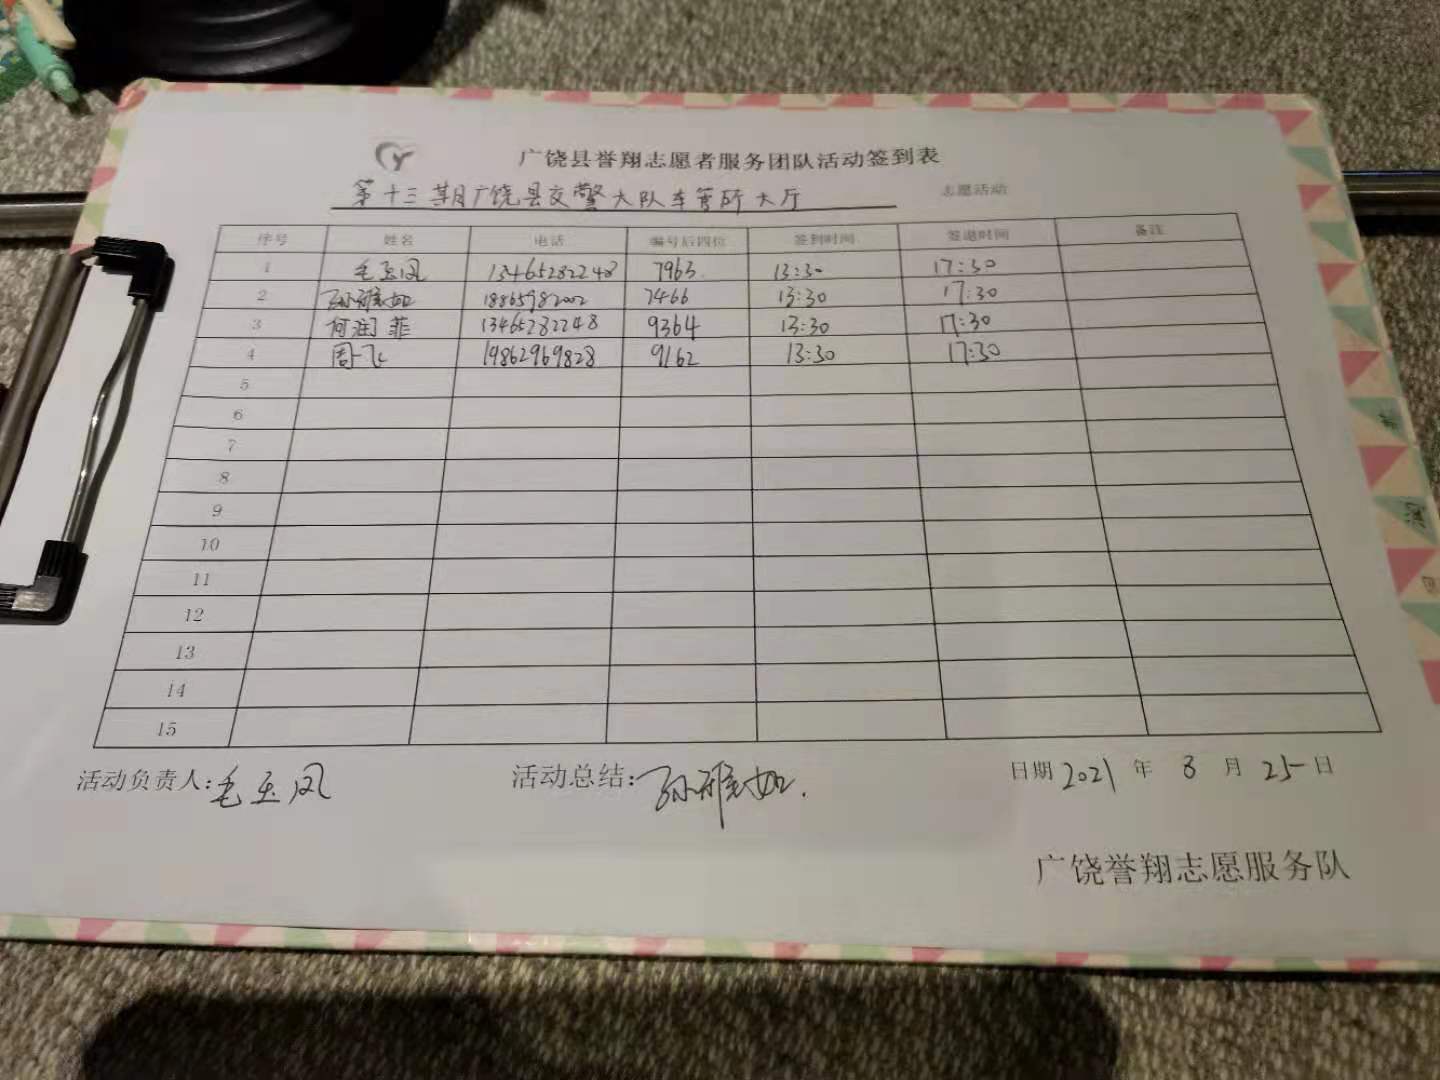 广饶县誉翔志愿者服务团队活动签到表
第十三期广饶县交警大队车管所大厅 志愿活动
序号 姓名 电话 编号后四位 签到时间 签退时间 备注
1 毛玉凤 13465282248 7963 13:30 17:30
2 孙雅如 18865982002 7466 13:30 17:30
3 何润菲 13465282248 9364 13:30 17:30
4 周一飞 19862969828 9162 13:30 17:30
5
6
7
8
9
10
11
12
13
14
15
活动负责人:毛玉凤 活动总结:孙雅如. 日期 2021 年 8 月 25 日
广饶誉翔志愿服务队